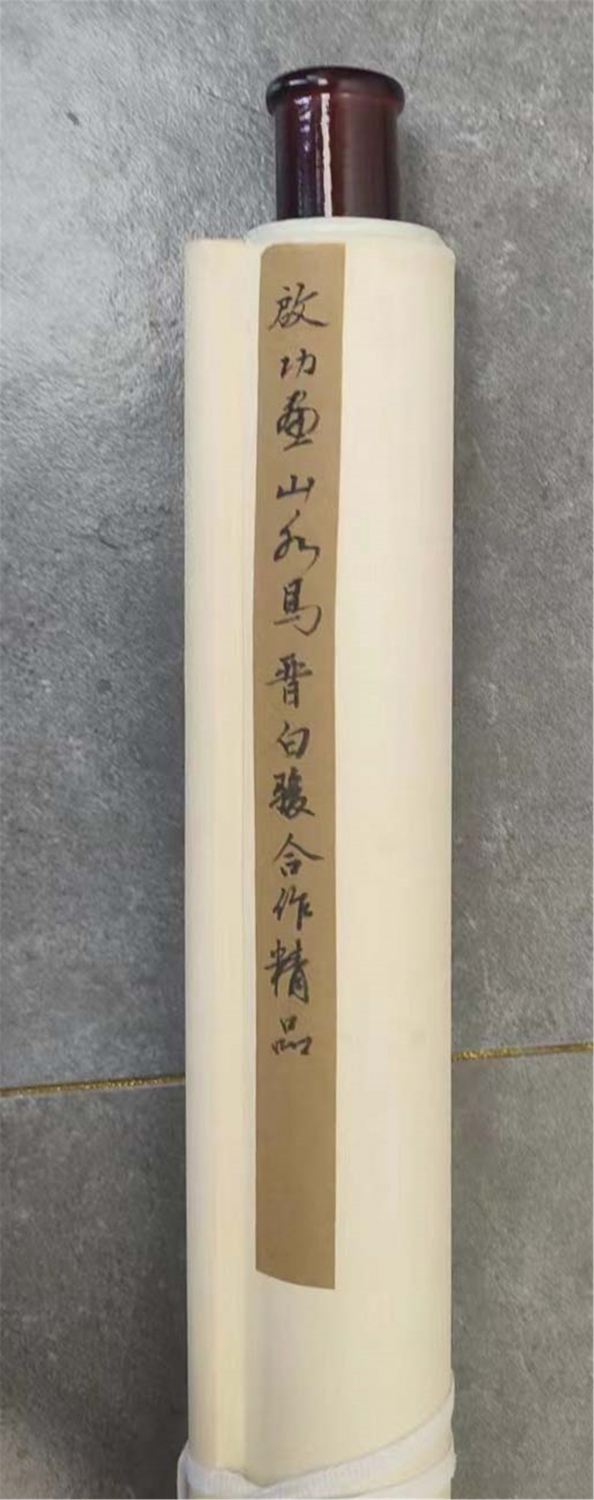 啟功画山水馬晋白駿合作精品